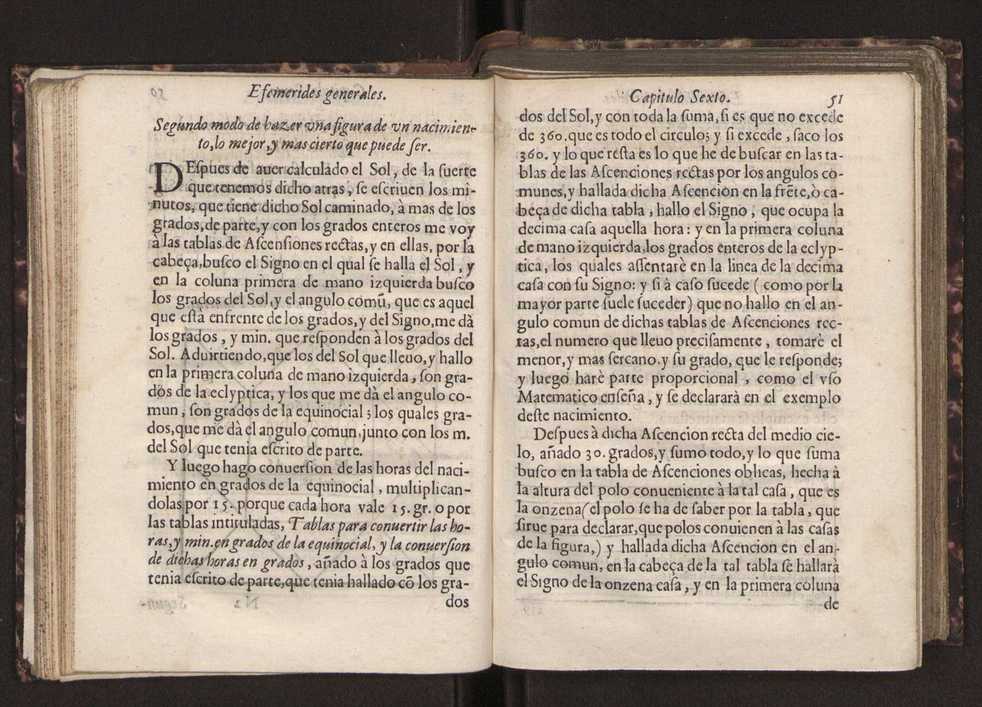 Efemerides generales.
Segundo modo de hazer vna figura de vn nacimien-
to, lo mejor, y mas cierto que puede ſer.
DEſpues de auer calculado el Sol, de la ſuerte
que tenemos dicho atras, ſe eſcriuen los mi-
nutos, que tiene dicho Sol caminado, à mas de los
grados, de parte, y con los grados enteros me voy
à las tablas de Aſcenſiones rectas, y en ellas, por la
cabeça, buſco el Signo en el qual ſe halla el Sol, y
en la coluna primera de mano izquierda buſco
los grados del Sol, y el angulo comũ, que es aquel
que eſtà enfrente de los grados, y del Signo, me dà
los grados, y min. que reſponden à los grados del
Sol. Aduirtiendo, que los del Sol que lleuo, y hallo
en la primera coluna de mano izquierda, ſon gra-
dos de la eclyptica, y los que me dà el angulo co-
mun, ſon grados de la equinocial; los quales gra-
dos, que me dà el angulo comun, junto con los m.
del Sol que tenia eſcrito de parte.
Y luego hago conuerſion de las horas del naci-
miento en grados de la equinocial, multiplican-
dolas por 15. porque cada hora vale 15. gr. o por
las tablas intituladas, Tablas para conuertir las ho-
ras, y min. en grados de la equinocial, y la conuerſion
de dichas horas en grados, añado à los grados que
tenia eſcrito de parte, que tenia hallado cõ los gra-
dos
Capitulo Sexto. 51
dos del Sol, y con toda la ſuma, ſi es que no excede
de 360. que es todo el circulo; y ſi excede, ſaco los
360. y lo que reſta es lo que he de buſcar en las ta-
blas de las Aſcenciones rectas por los angulos co-
munes, y hallada dicha Aſcencion en la frẽte, ò ca-
beça de dicha tabla, hallo el Signo, que ocupa la
decima caſa aquella hora: y en la primera coluna
de mano izquierda, los grados enteros de la eclyp-
tica, los quales aſſentarè en la linea de la decima
caſa con ſu Signo: y ſi à caſo ſucede (como por la
mayor parte ſuele ſuceder) que no hallo en el an-
gulo comun de dichas tablas de Aſcenciones rec-
tas, el numero que lleuo preciſamente, tomarè el
menor, y mas ſercano. y ſu grado, que le reſponde;
y luego harè parte proporcional, como el vſo
Matematico enſeña, y ſe declararà en el exemplo
deſte nacimiento.
Deſpues à dicha Aſcencion recta del medio cie-
lo, añado 30. grados, y ſumo todo, y lo que ſuma
buſco en la tabla de Aſcenciones oblicas, hecha à
la altura del polo conueniente à la tal caſa, que es
la onzena (el polo ſe ha de ſaber por la tabla, que
ſirue para declarar, que polos conuienen à las caſas
de la figura,) y hallada dicha Aſcencion en el an-
gulo comun, en la cabeça de la tal tabla ſe hallarà
el Signo de la onzena caſa, y en la primera coluna
de